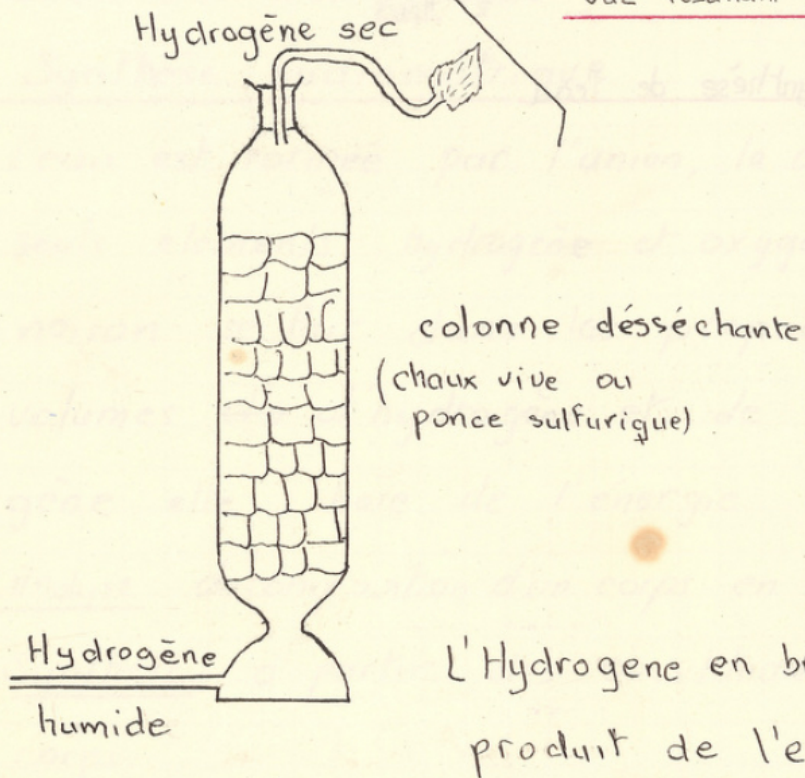 Hydrogène sec
colonne désséchante
(chaux vive ou
ponce sulfurique)
Hydrogène
humide
L'Hydrogene en
produit de l'e